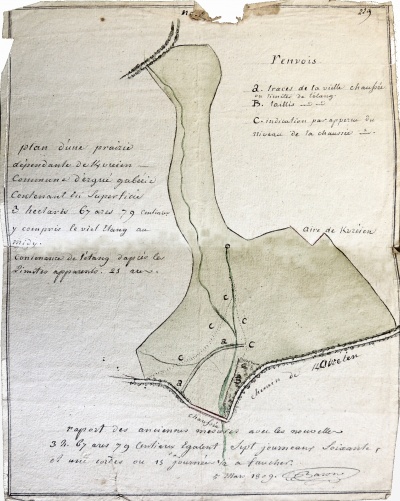 229
renvois
a. traces de la vielle chaussée
ou limites de l'etang
B. taillis
C. indication par apperue du
niveau de la chaussée
plan d'une prairie
dépendante de Kvreien
Commune d'ergué gaberic
Contenant en Superficie
3 hectares 67 ares 79 Centiares
y compris le viel Etang au
midy.
Contenance de l'etang d'après les
limites apparents. 21 ares.
aire de Kvreien
c
c
c
c
c
a
a
B
chemin de
chaussée
raport des anciennes mesures avec les nouvelle
3 h. 67 ares 79 Centiares Egalent Sept journeaux Soixante
et une cordes ou 13 journée à faucher.
5 Mai 1809.